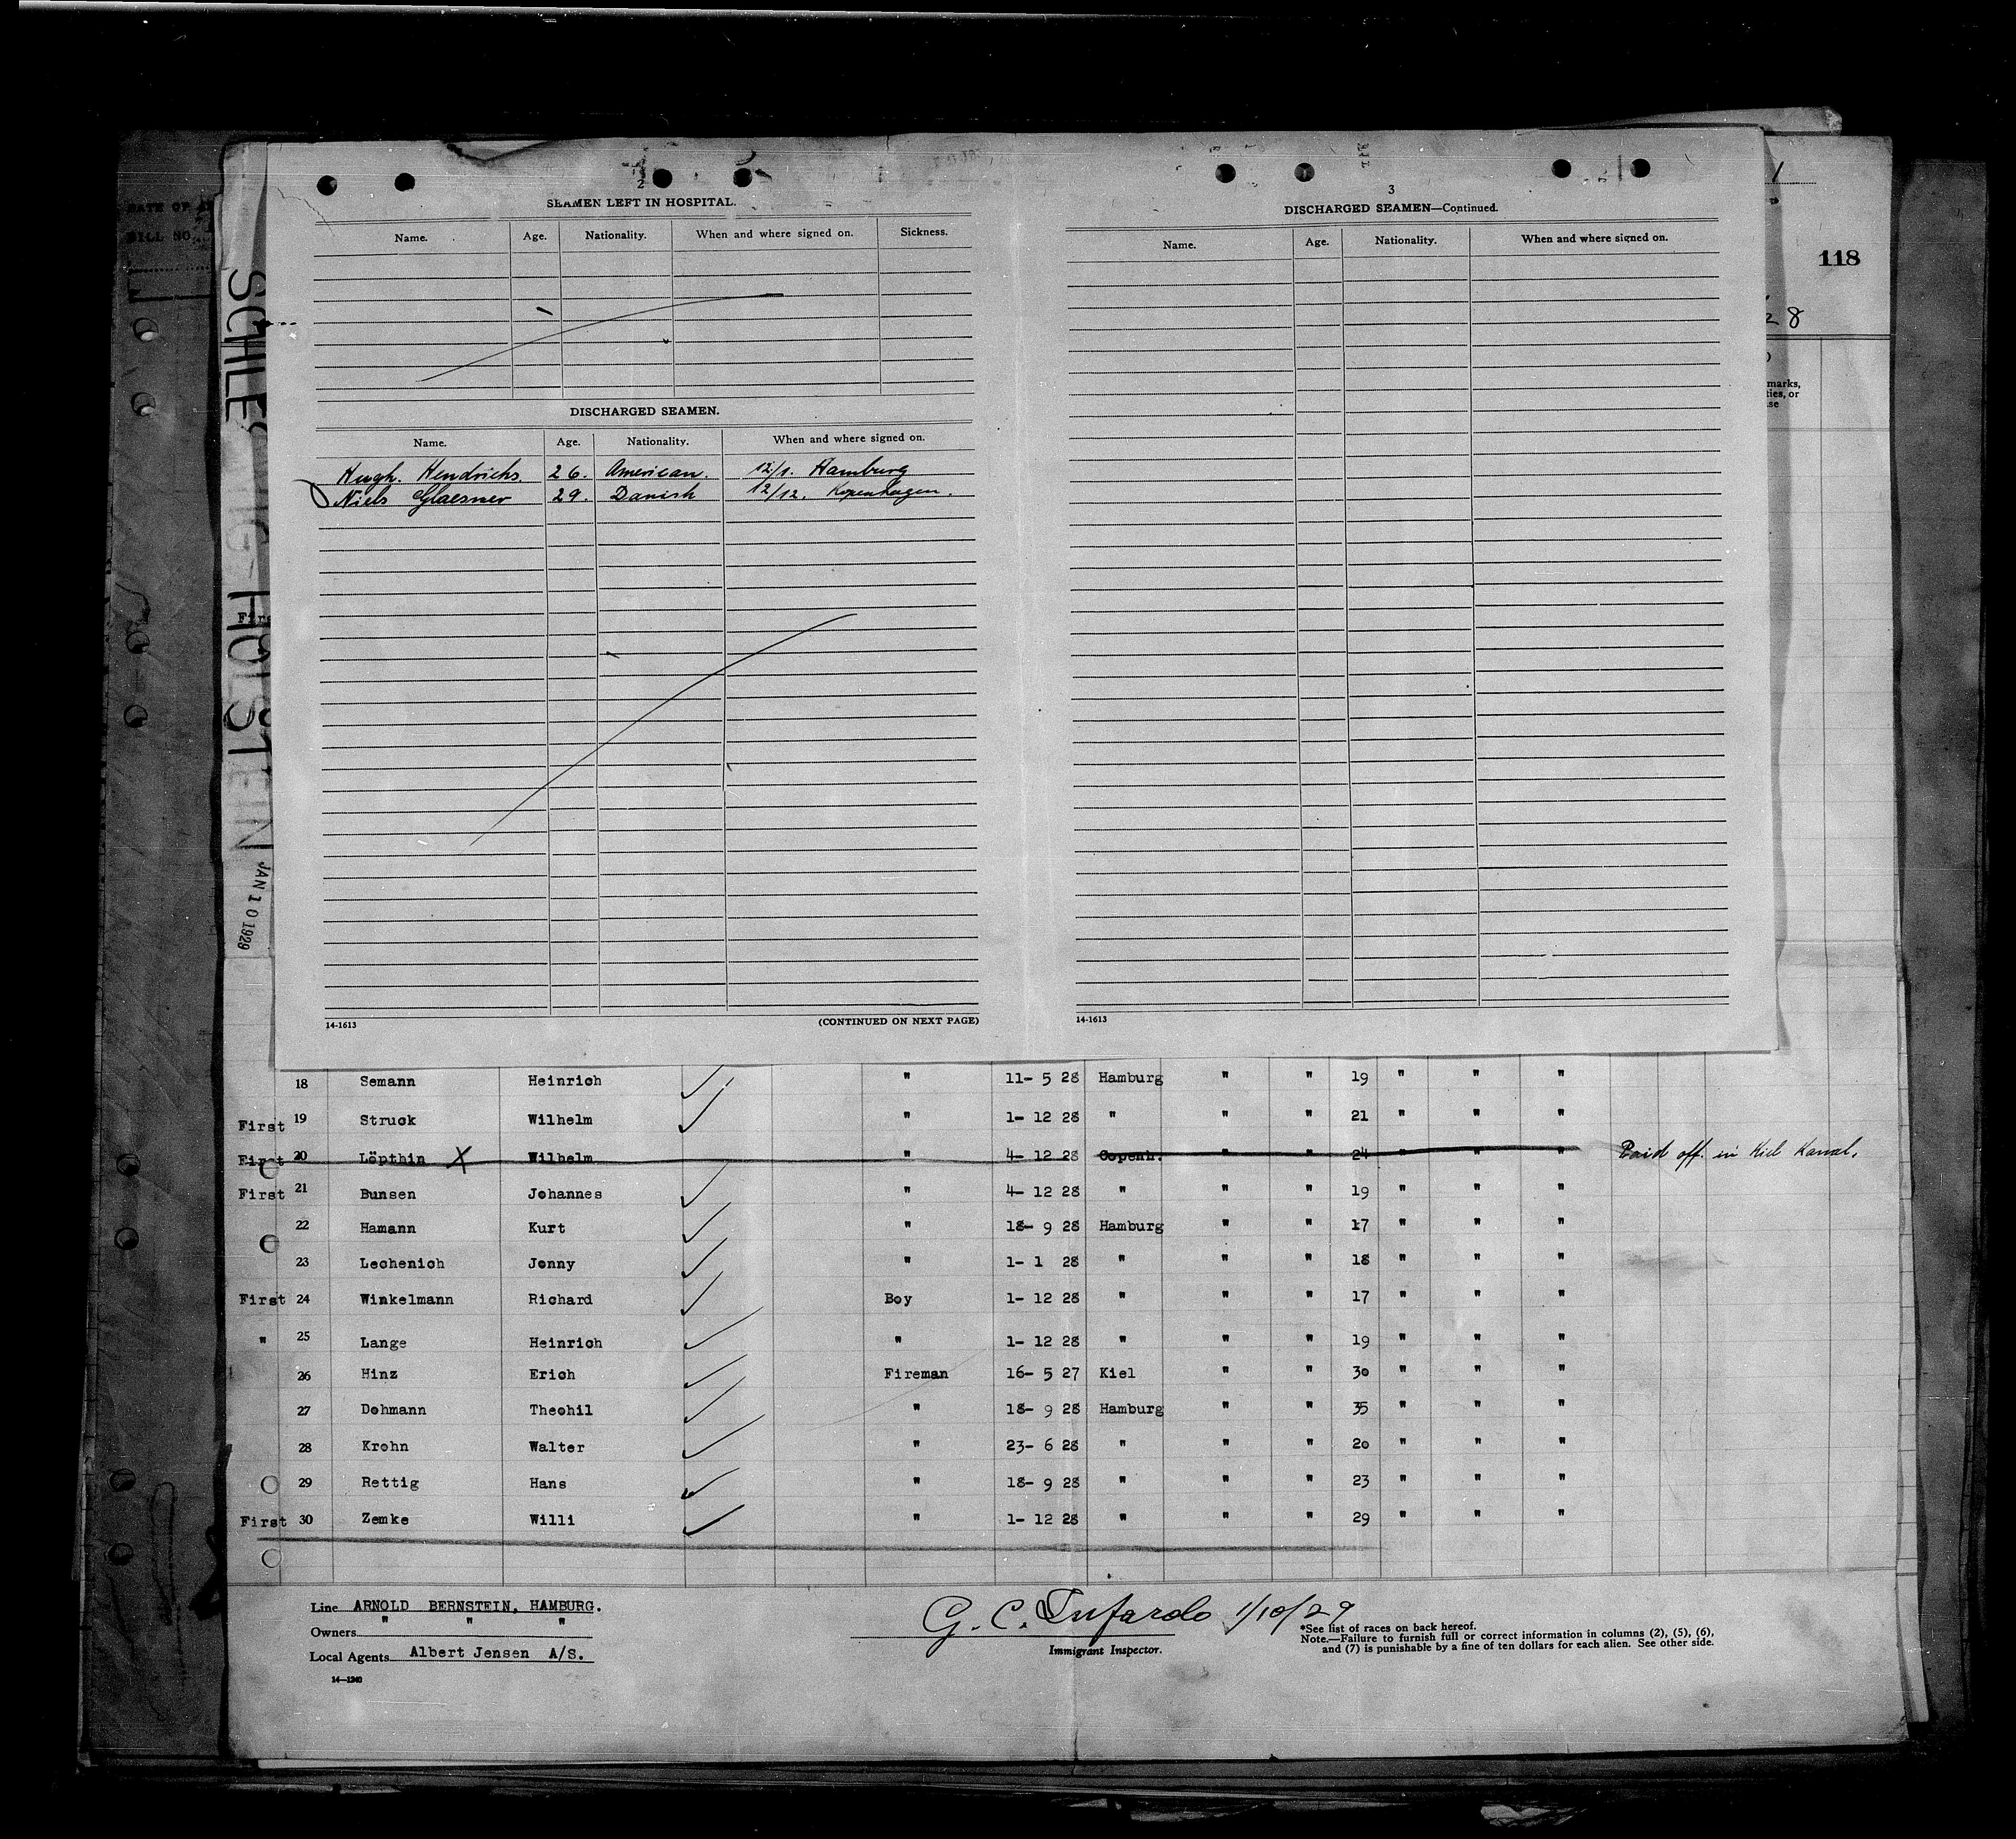 2
SEAMEN LEFT IN HOSPITAL.
Name. Age. Nationality. When and where signed on. Sickness.
DISCHARGED SEAMEN.
Name. Age. Nationality. When and where signed on.
Hugh. Hendrichs. 26. American. 12/1. Hamburg
Niels Glaesner 29. Danish 12/12. Kopenhagen.
14-1613 (CONTINUED ON NEXT PAGE)
3
DISCHARGED SEAMEN—Continued.
Name. Age. Nationality. When and where signed on.
14-1613
1
118
28
marks,
ties, or
se
DATE OF
BILL NO.
SCHLE
HOLSTEIN
JAN 10 1929
18 Semann Heinrich " 11- 5 28 Hamburg " " 19 " " "
First 19 Struck Wilhelm " 1- 12 28 " " " 21 " " "
First 20 Löpthin X Wilhelm " 4- 12 28 Copenh. " " 24 " " " Paid off. in Kiel Kanal.
First 21 Bunsen Johannes " 4- 12 28 " " " 19 " " "
22 Hamann Kurt " 18- 9 28 Hamburg " " 17 " " "
23 Lechenich Jonny " 1- 1 28 " " " 18 " " "
First 24 Winkelmann Richard Boy 1- 12 28 " " " 17 " " "
" 25 Lange Heinrich " 1- 12 28 " " " 19 " " "
26 Hinz Erich Fireman 16- 5 27 Kiel " " 30 " " "
27 Dohmann Theohil " 18- 9 28 Hamburg " " 35 " " "
28 Krohn Walter " 23- 6 28 " " " 20 " " "
29 Rettig Hans " 18- 9 28 " " " 23 " " "
First 30 Zemke Willi " 1- 12 28 " " " 29 " " "
Line ARNOLD BERNSTEIN, HAMBURG.
Owners " " "
Local Agents Albert Jensen A/S.
14-1240
G. C. 1/10/29
Immigrant Inspector.
*See list of races on back hereof.
Note.—Failure to furnish full or correct information in columns (2), (5), (6),
and (7) is punishable by a fine of ten dollars for each alien. See other side.